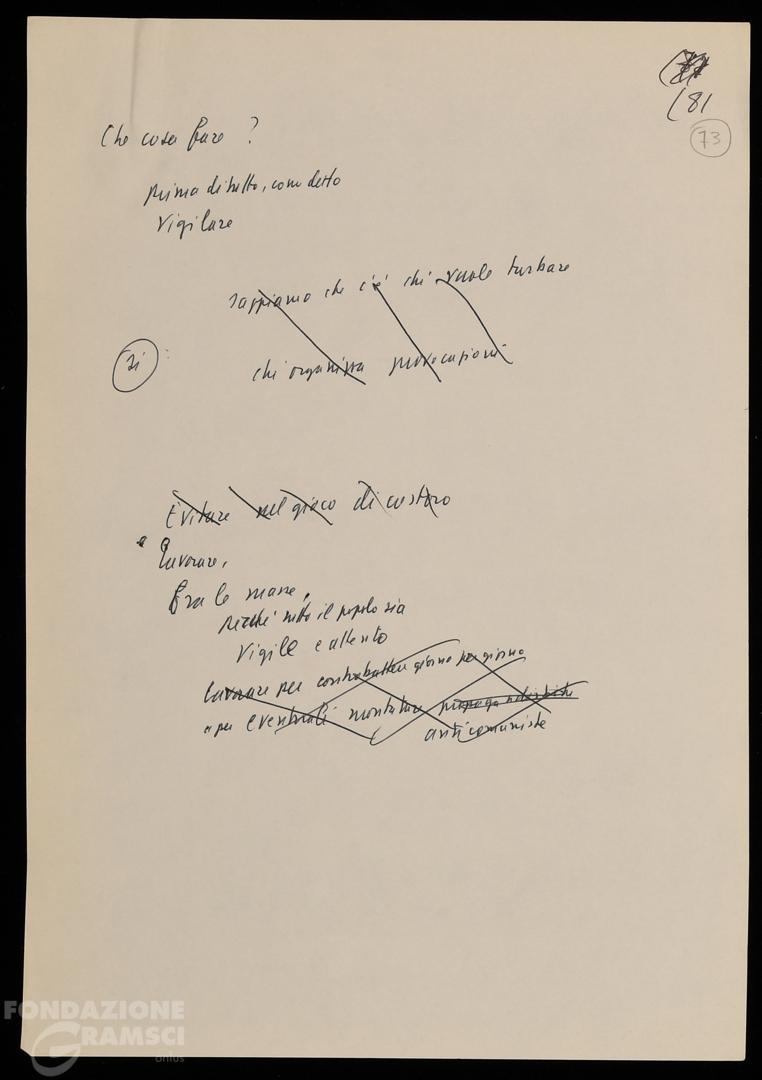 (81
73
Che cosa fare ?
prima di tutto, come detto
Vigilare
sappiamo che c'è chi vuole turbare
Sì
chi organizza provocazioni
Evitare nel gioco di costoro
e Lavorare,
fra le masse,
perché tutto il popolo sia
Vigile e attento
lavorare per controbattere giorno per giorno
e per eventuali montature propagandistiche
anticomuniste
FONDAZIONE
GRAMSCI
onlus